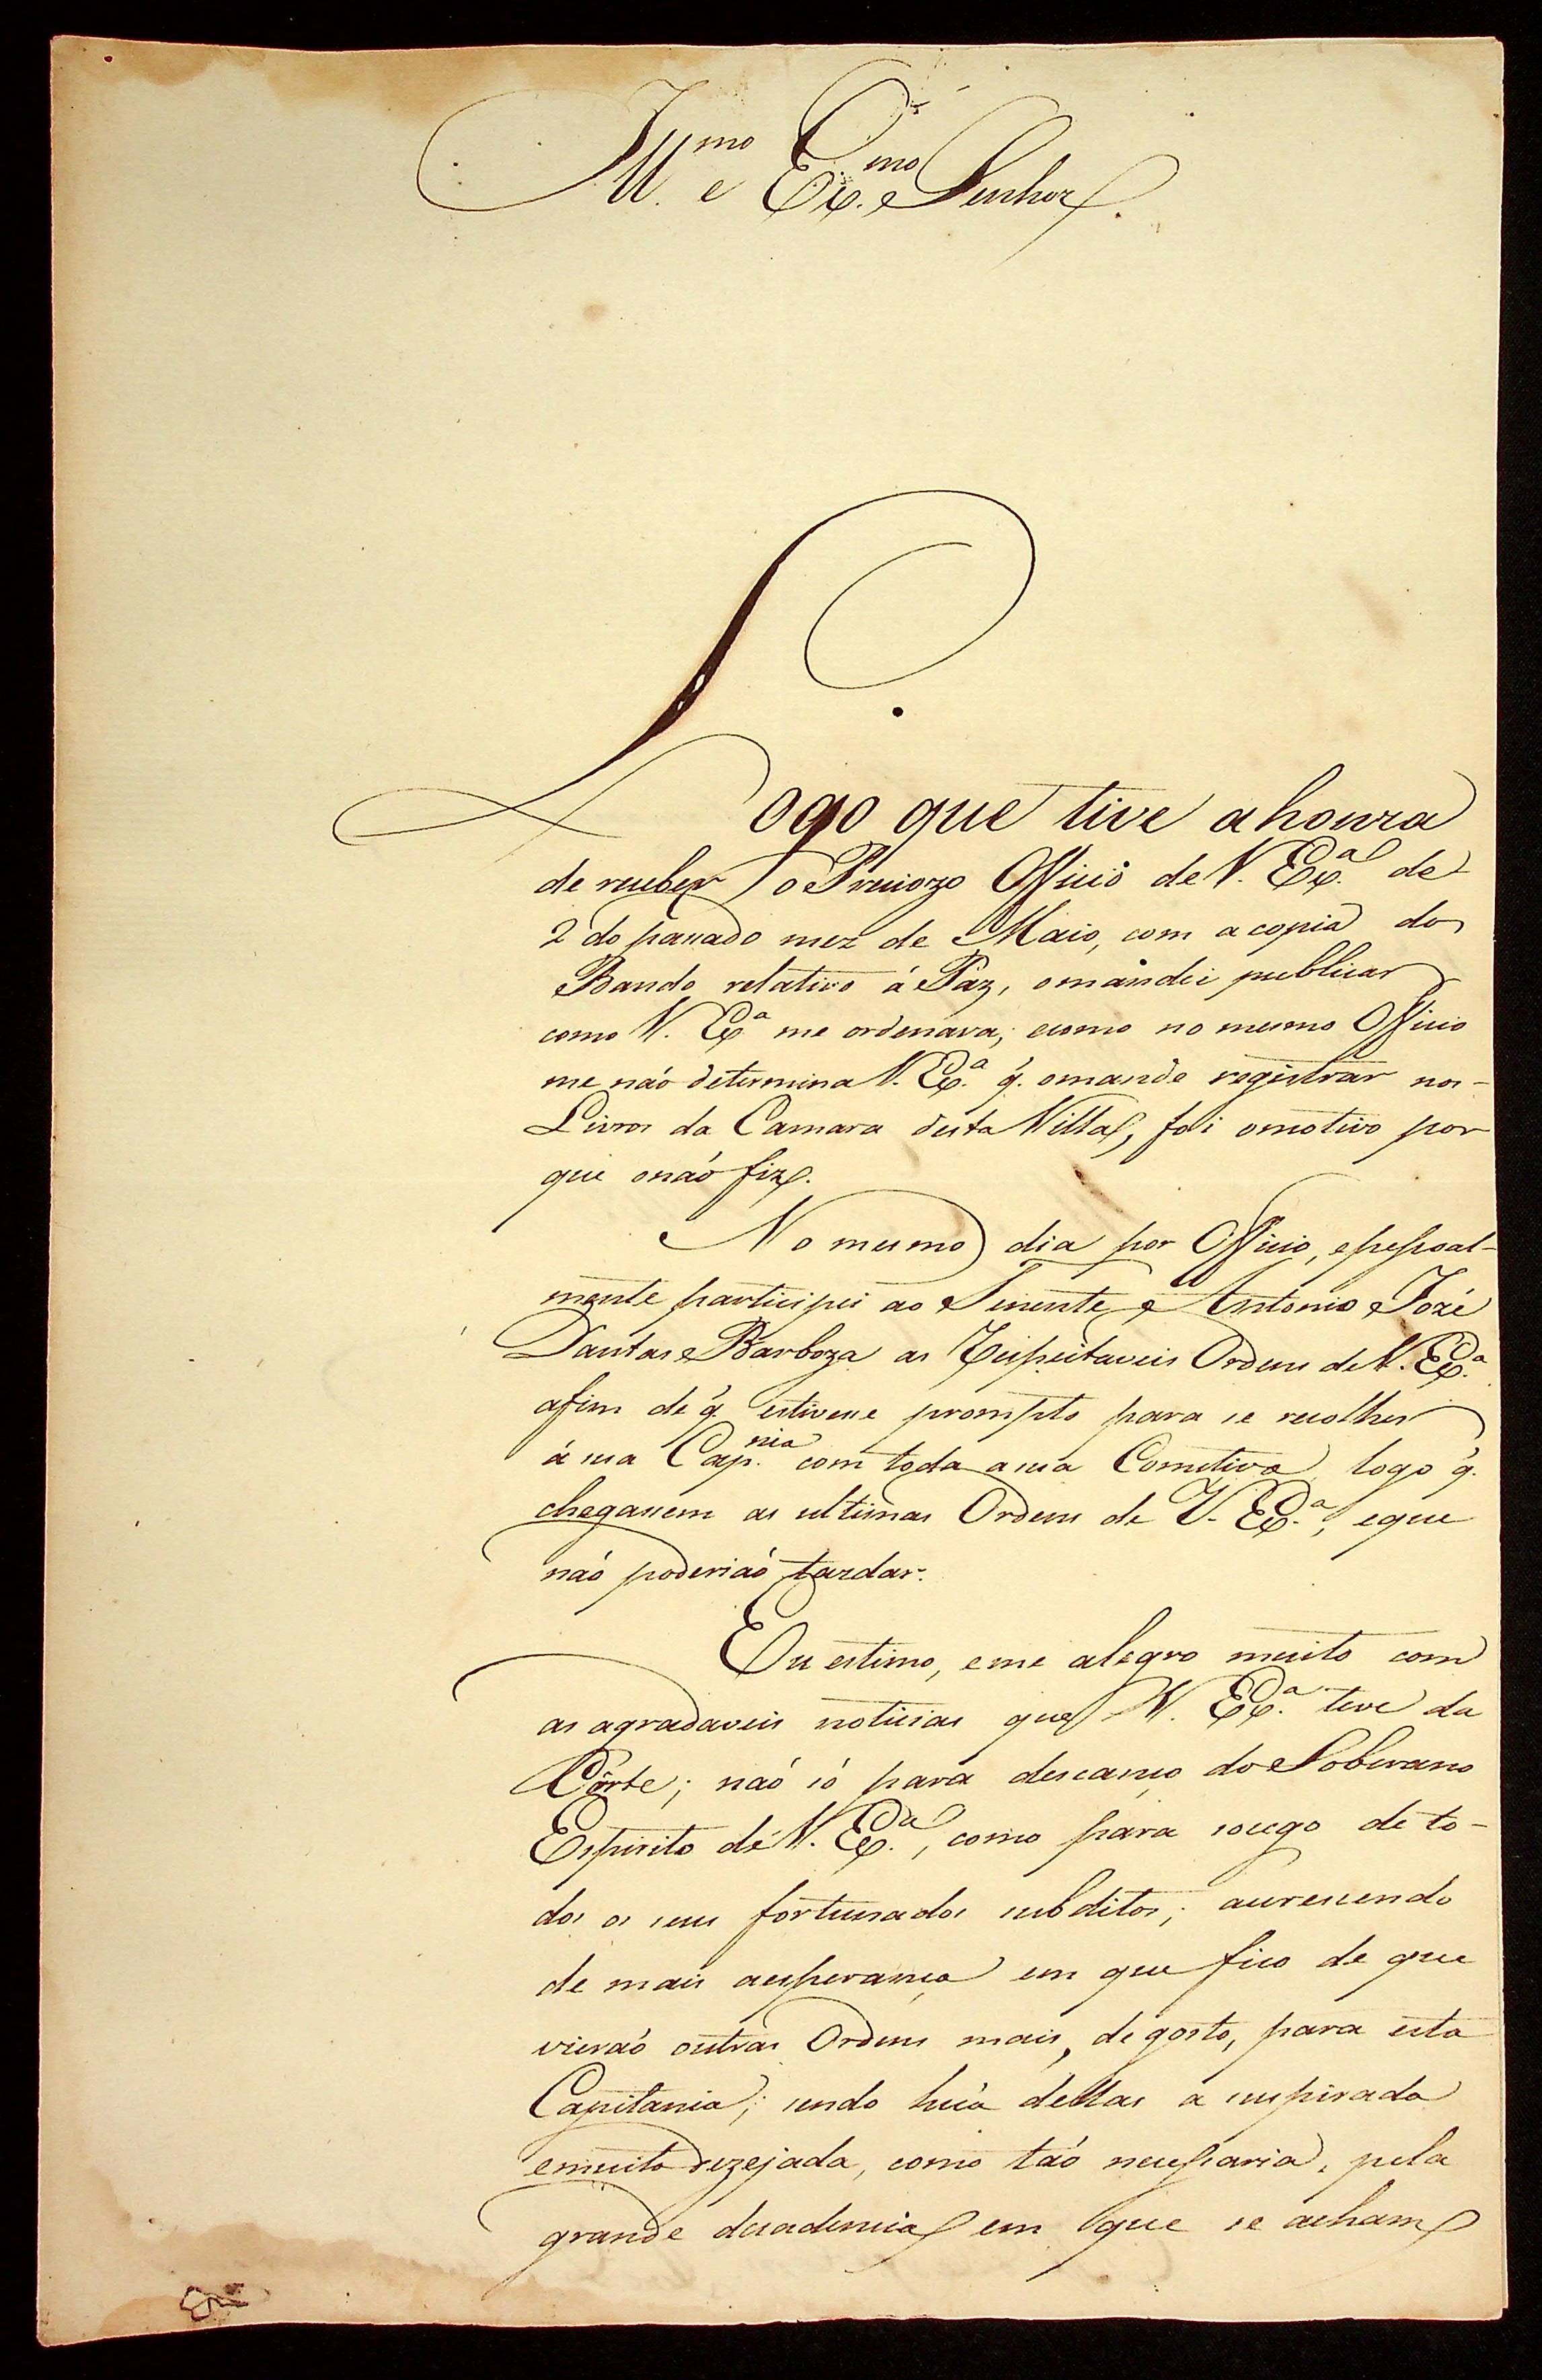 Ill.mo e Ex.mo Senhor
Logo que tive a honra
de receber o Preciozo Officio de V. Ex.a de
2 do passado mez de Maio, com a copia do
Bando relativo á Paz, o mandei publicar
como V. Ex.a me ordenava; e como no mesmo Officio
me naó determina V. Ex.a q. o mande registrar nos
Livros da Camara desta Villa, foi o motivo por
que o naó fiz.
No mesmo dia por Officio, e pessoal-
mente participei ao Tenente Antonio Jozé
Dantas Barboza as Respeitaveis Ordens de V. Ex.a
afim de q. estivesse prompto para se recolher
á sua Cap.nia com toda a sua Comitiva logo q.
chegassem as ultimas Ordens de V. Ex.a, e que
naó poderiaó tardar.
Eu estimo, e me alegro muito com
as agradaveis noticias que V. Ex.a teve da
Côrte; naó só para descanço do Soberano
Espirito de V. Ex.a, como para socego de to-
dos os seus fortunados subditos; accrescendo
de mais a esperança em que fico de que
viraó outras Ordens mais, de gosto, para esta
Capitania; sendo huá dellas a suspirada
e muito dezejada, como taó necessaria, pela
grande decadencia em que se acham